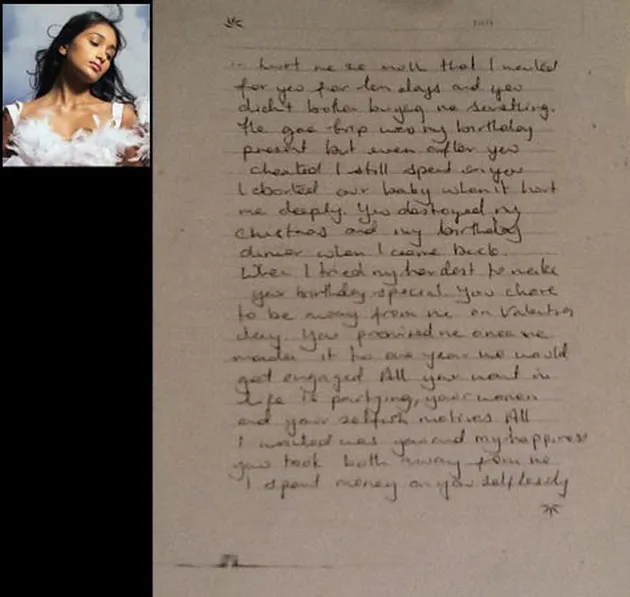 hurt me so much that I waited
for you for ten days and you
didn't bother buying me something.
The goa trip was my birthday
present but even after you
cheated I still spent on you
I aborted our baby when it hurt
me deeply. You destroyed my
christmas and my birthday
dinner when I came back.
When I tried my hardest to make
your birthday special. You chose
to be away from me on Valentines
day. You promised me once we
made it to one year we would
get engaged All you want in
life is partying, your women
and your selfish motives All
I wanted was you and my happiness
you took both away from me
I spent money on you selflessly